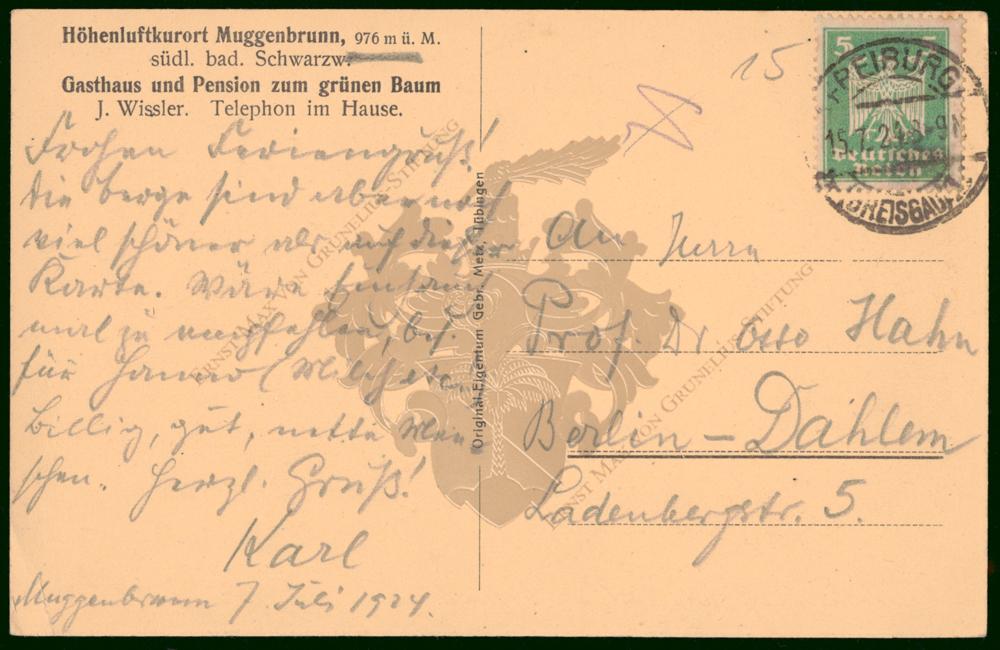 Höhenluftkurort Muggenbrunn, 976 m ü. M.
südl. bad. Schwarzw.
Gasthaus und Pension zum grünen Baum
J. Wissler. Telephon im Hause.
Frohen Feriengruß!
Die Berge sind aber noch
viel schöner als auf dieser
Karte. Wäre
mal zu empfehlen, bes.
für Hanno (Milch etc.
Billig, gut, nette Men
schen. Herzl. Gruß!
Karl
Muggenbrunn 7 Juli 1924.
Original-Eigentum Gebr. Metz, Tübingen
15
5 5
Deutsches
Reich
FREIBURG
15.7.24.8-9N
(BREISGAU)
An Herrn
Prof. Dr Otto Hahn
Berlin - Dahlem
Ladenbergstr. 5.
ERNST MAX VON GRUNELIUS-STIFTUNG
ERNST MAX VON GRUNELIUS-STIFTUNG